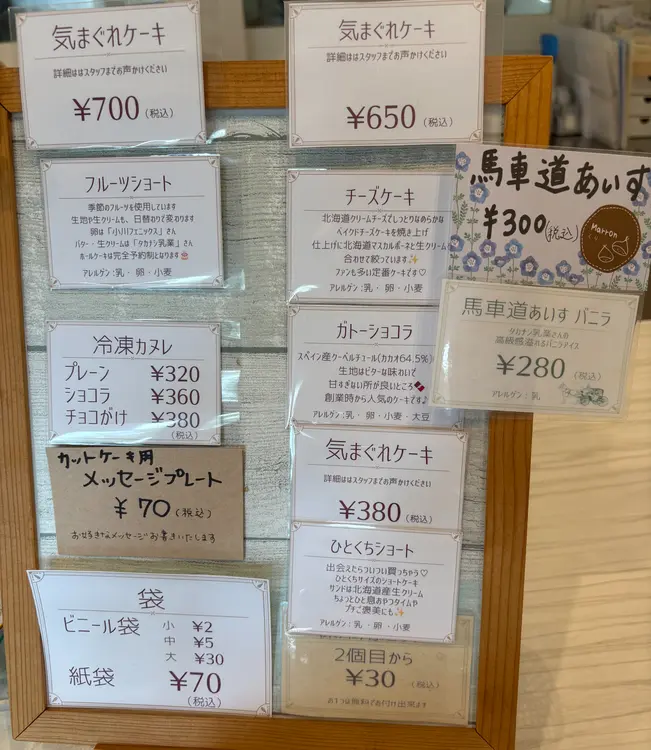 気まぐれケーキ
詳細ははスタッフまでお声かけください
¥700(税込)
気まぐれケーキ
詳細ははスタッフまでお声かけください
¥650(税込)
フルーツショート
季節のフルーツを使用しています
生地や生クリームも、日替わりで変わります
卵は「小川フェニックス」さん
バター・生クリームは「タカナシ乳業」さん
ホールケーキは完全予約制となります🎂
アレルゲン:乳・卵・小麦
チーズケーキ
北海道クリームチーズでしっとりなめらかな
ベイクドチーズケーキを焼き上げ
仕上げに北海道マスカルポーネと生クリーム
合わせて絞っています✨
ファンも多い定番ケーキです♡
アレルゲン:乳・卵・小麦
馬車道あいす
¥300(税込)
Marron
馬車道あいす バニラ
タカナシ乳業さんの
高級感溢れるバニラアイス
¥280(税込)
アレルゲン:乳
冷凍カヌレ
プレーン ¥320
ショコラ ¥360
チョコがけ ¥380
(税込)
ガトーショコラ
スペイン産クーベルチュール(カカオ64.5%)
生地はビターな味わいで
甘すぎない所が良いところ🍫
創業時から人気のケーキです♪
アレルゲン:乳・卵・小麦・大豆
カットケーキ用
メッセージプレート
¥70(税込)
お好きなメッセージお書きいたします
気まぐれケーキ
詳細ははスタッフまでお声かけください
¥380(税込)
ひとくちショート
出会えたらついつい買っちゃう♡
ひとくちサイズのショートケーキ
サンドは北海道産生クリーム
ちょっとひと息おやつタイムや
プチご褒美にも✨
アレルゲン:乳・卵・小麦
袋
ビニール袋 小 ¥2
中 ¥5
大 ¥30
紙袋 ¥70
(税込)
2個目から
¥30(税込)